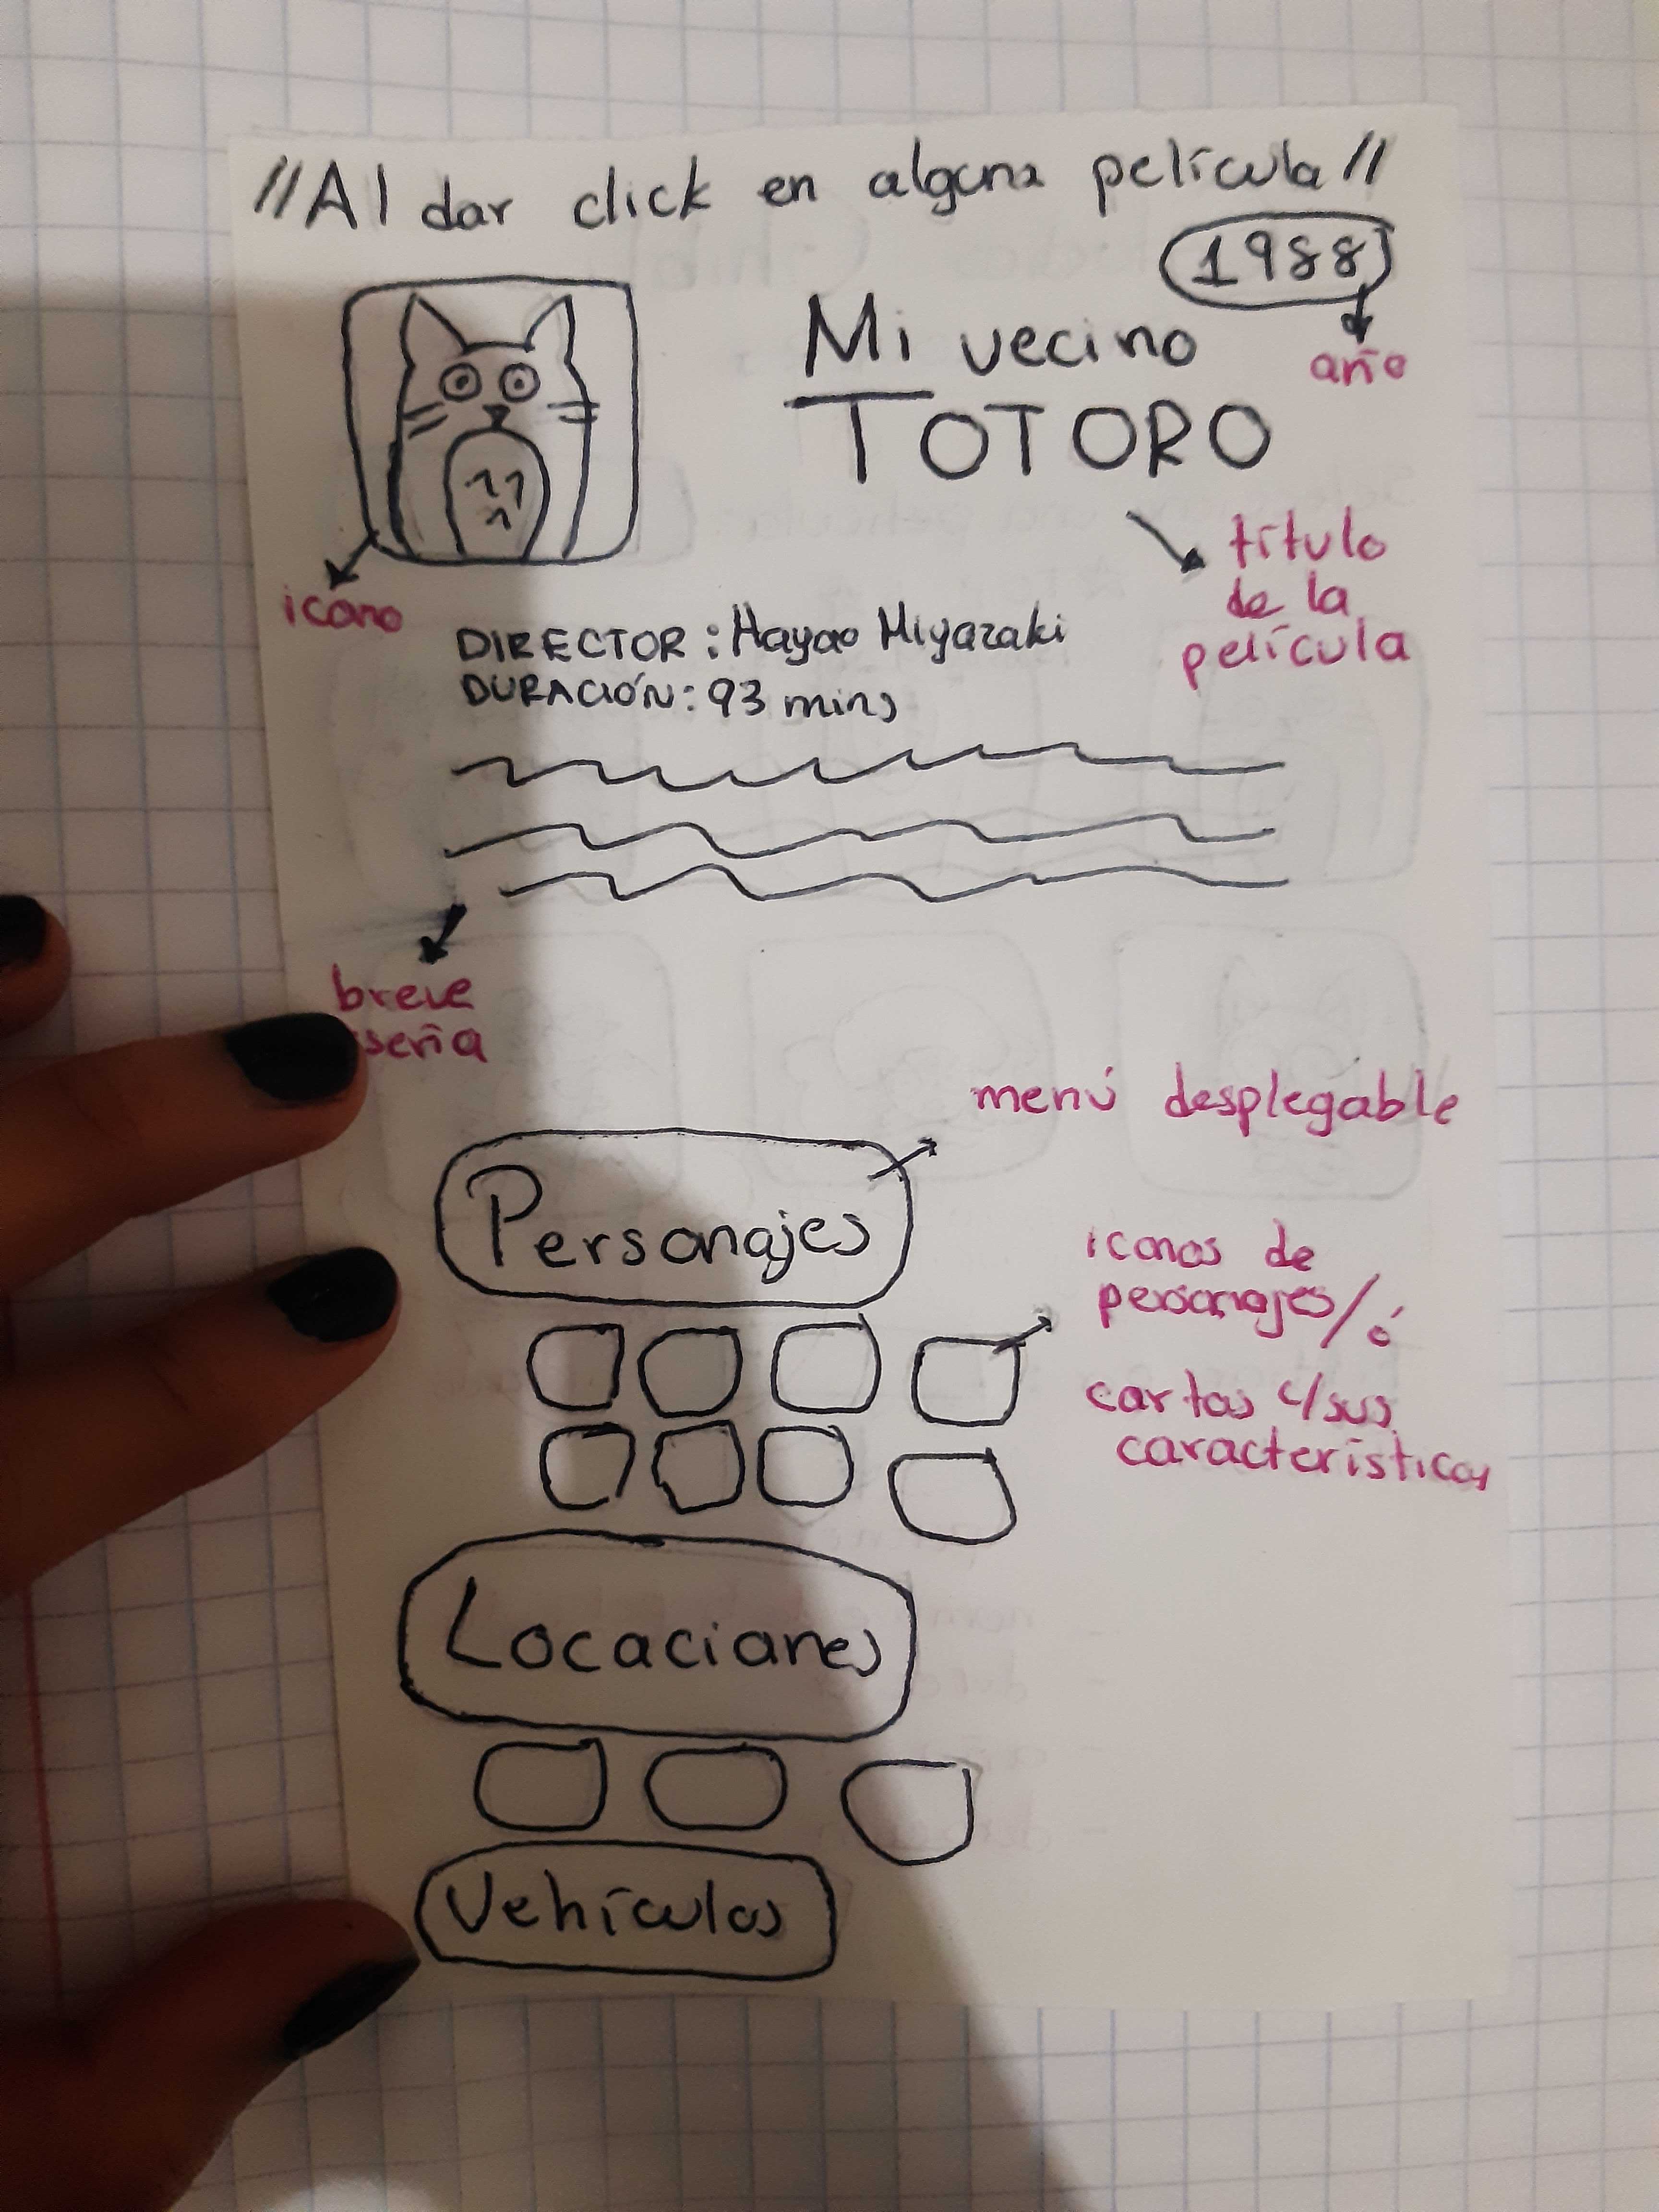 //Al dar click en alguna película//
1988
año
Mi vecino
TOTORO
icono
título
de la
película
DIRECTOR: Hayao Miyazaki
DURACIÓN: 93 mins
breve
seña
menú desplegable
Personajes
iconos de
personajes/ó
cartas c/sus
características
Locaciones
Vehículos